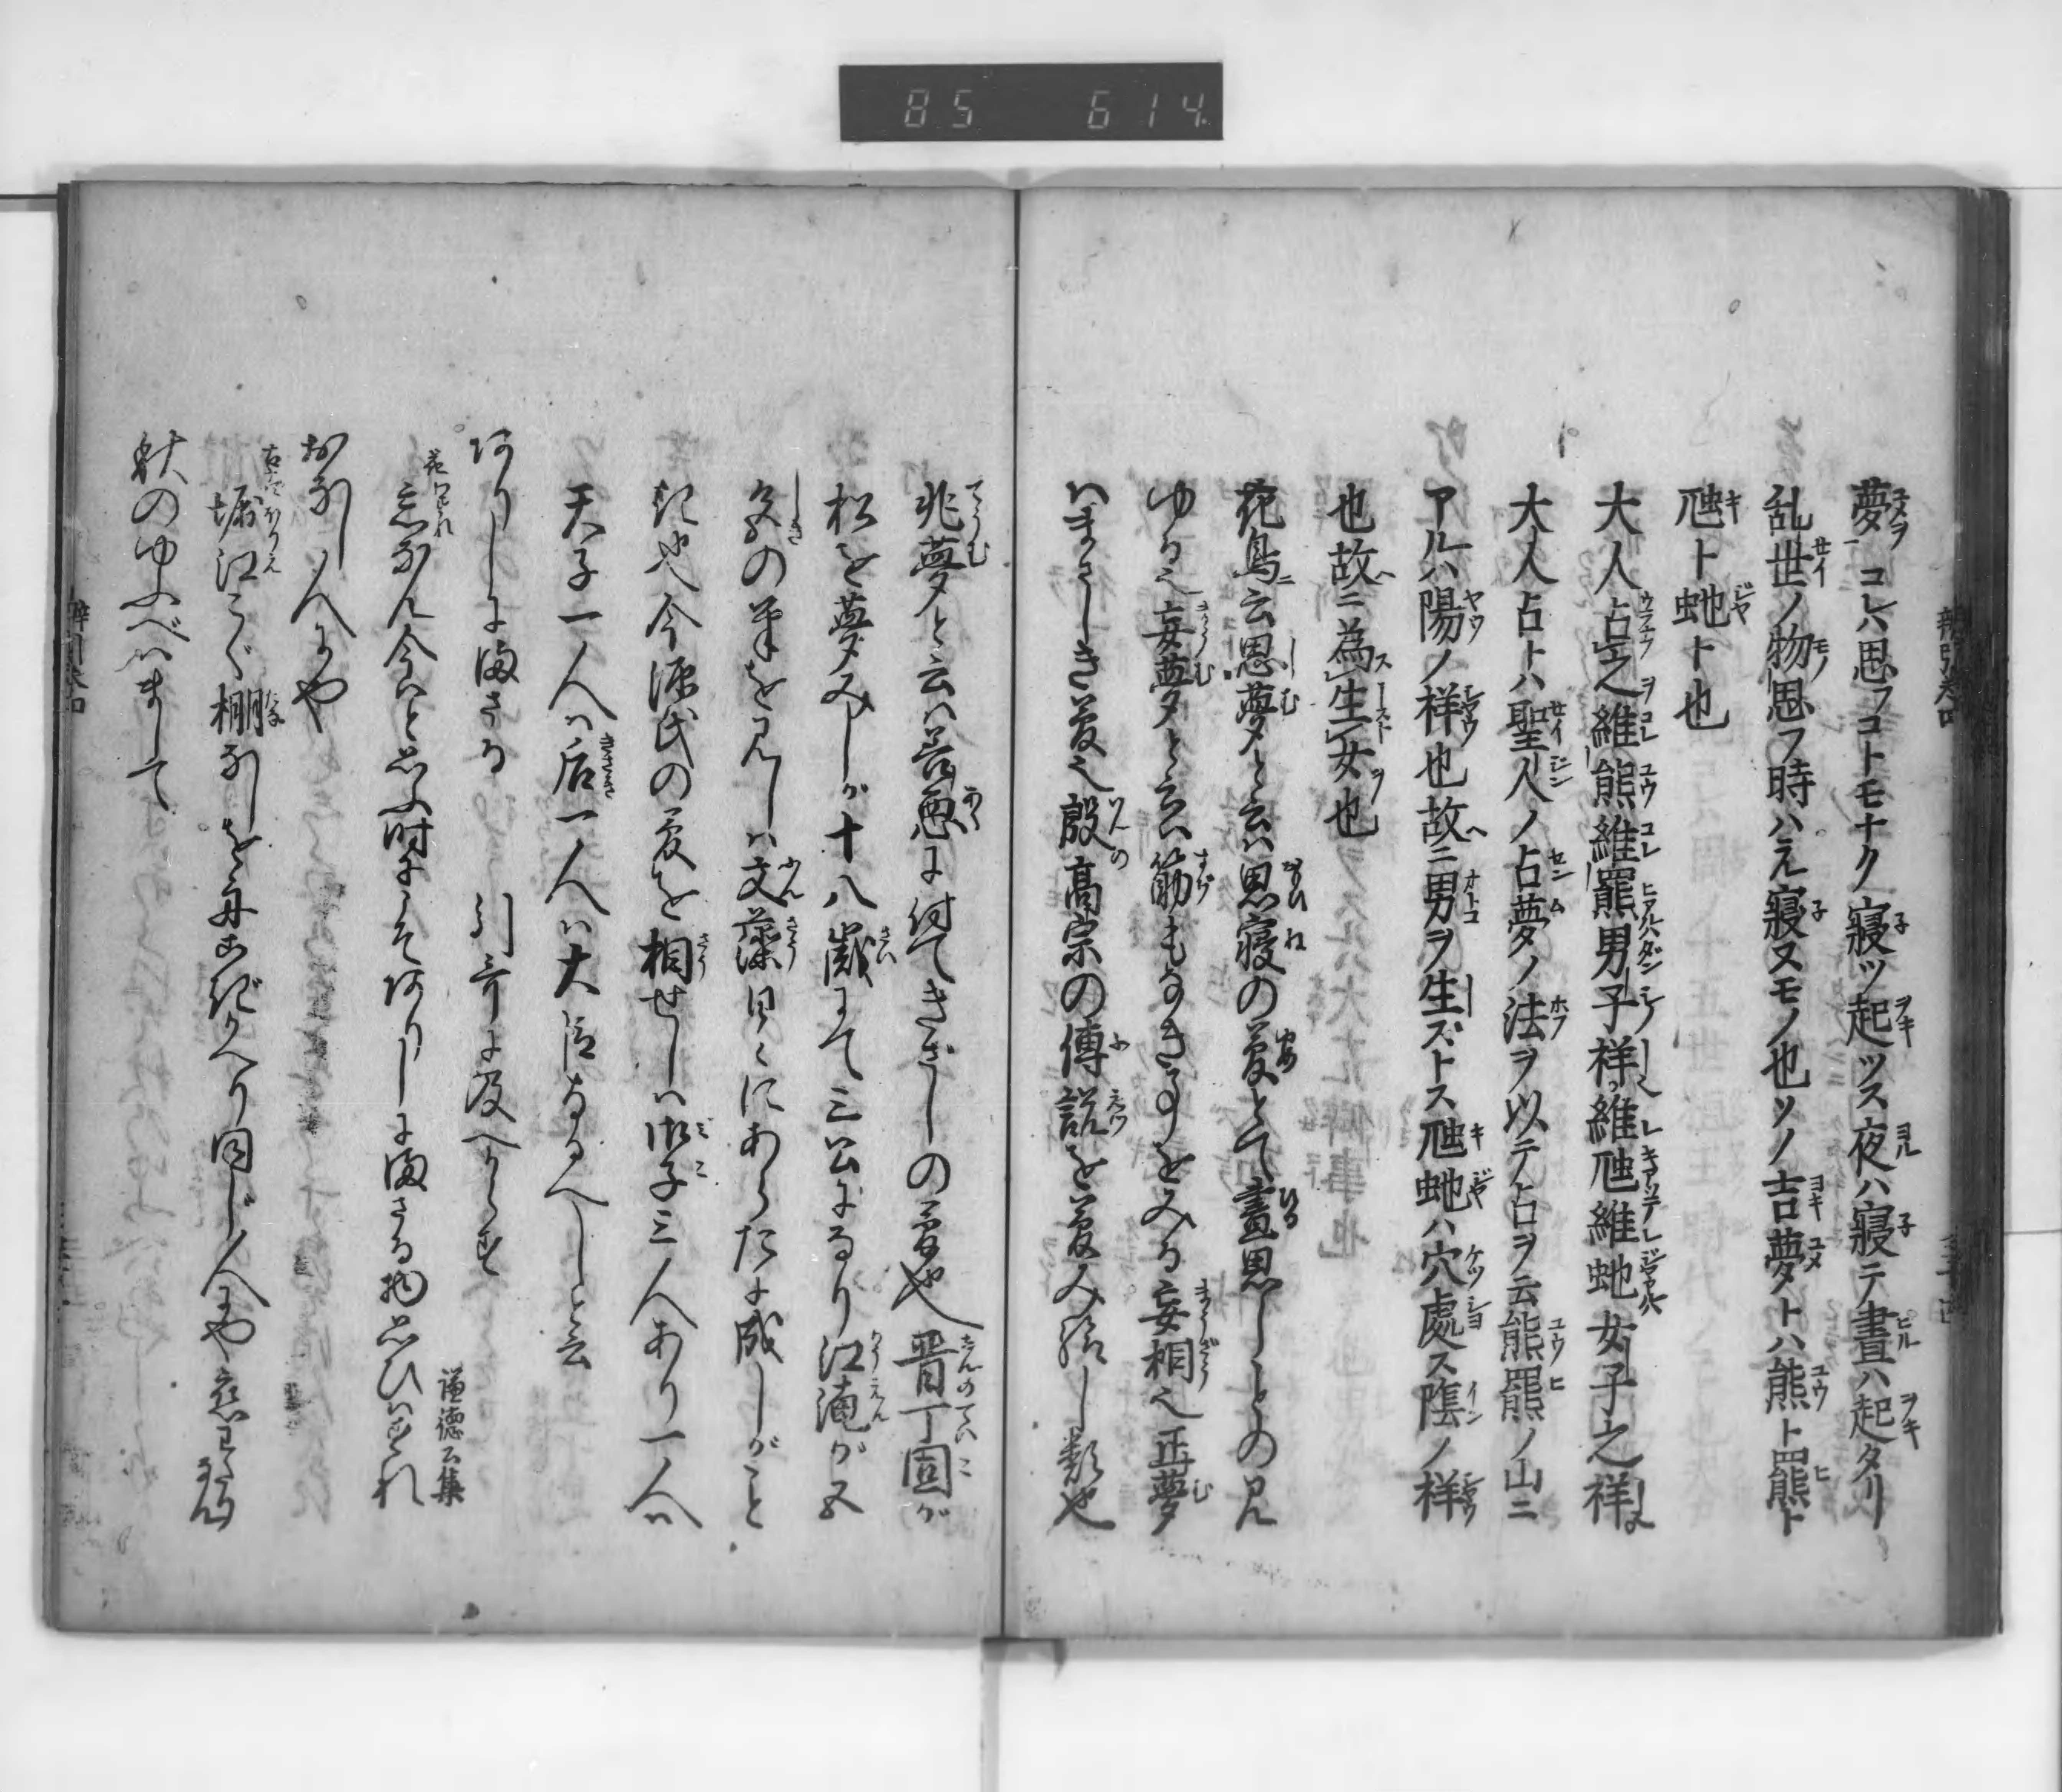 85 614
夢ヲコレハ思フコトモナク寝ツ起ツス夜ハ寝テ晝ハ起タリ
乱世ノ物思フ時ハえ寝又モノ也ソノ吉夢タトハ熊ト羆ト
虺ト虵ト也
大人占之維熊維羆男子祥維虺維虵女子之祥
大人占トハ聖人ノ占夢ノ法ヲ以テ占ヲ云熊羆ノ山ニ
アルハ陽ノ祥也故ニ男ヲ生ズトス虺虵ハ穴處ス陰ノ祥
也故ニ為生女也
花鳥ニ云思夢と云ハ思寝の夢とて晝思しことのみえ
ゆる也妄夢と云ハ筋もなき事をみる妄相也正夢
ハまさしき夢也殷高宗の傅説を夢み給し類也
兆夢と云ハ善悪に付てきざしの夢也晋丁固が
松を夢みしが十八歳にて三公になり江淹が五
色の筆をみしハ文藻日々にあらたに成しがこと
き也今源氏の夢を相せしハ御子三人あり一人ハ
天子一人ハ后一人ハ大臣なるへしと云
ありしにまさる 引哥に及へからす
忘なん今ハと思ふ時にこそありしにまさる物思ひハすれ
謙徳公集
おなし人にや
堀江こぐ棚なしを舟こぎかへり同じ人にや恋わたりなん
秋のゆふべハまして